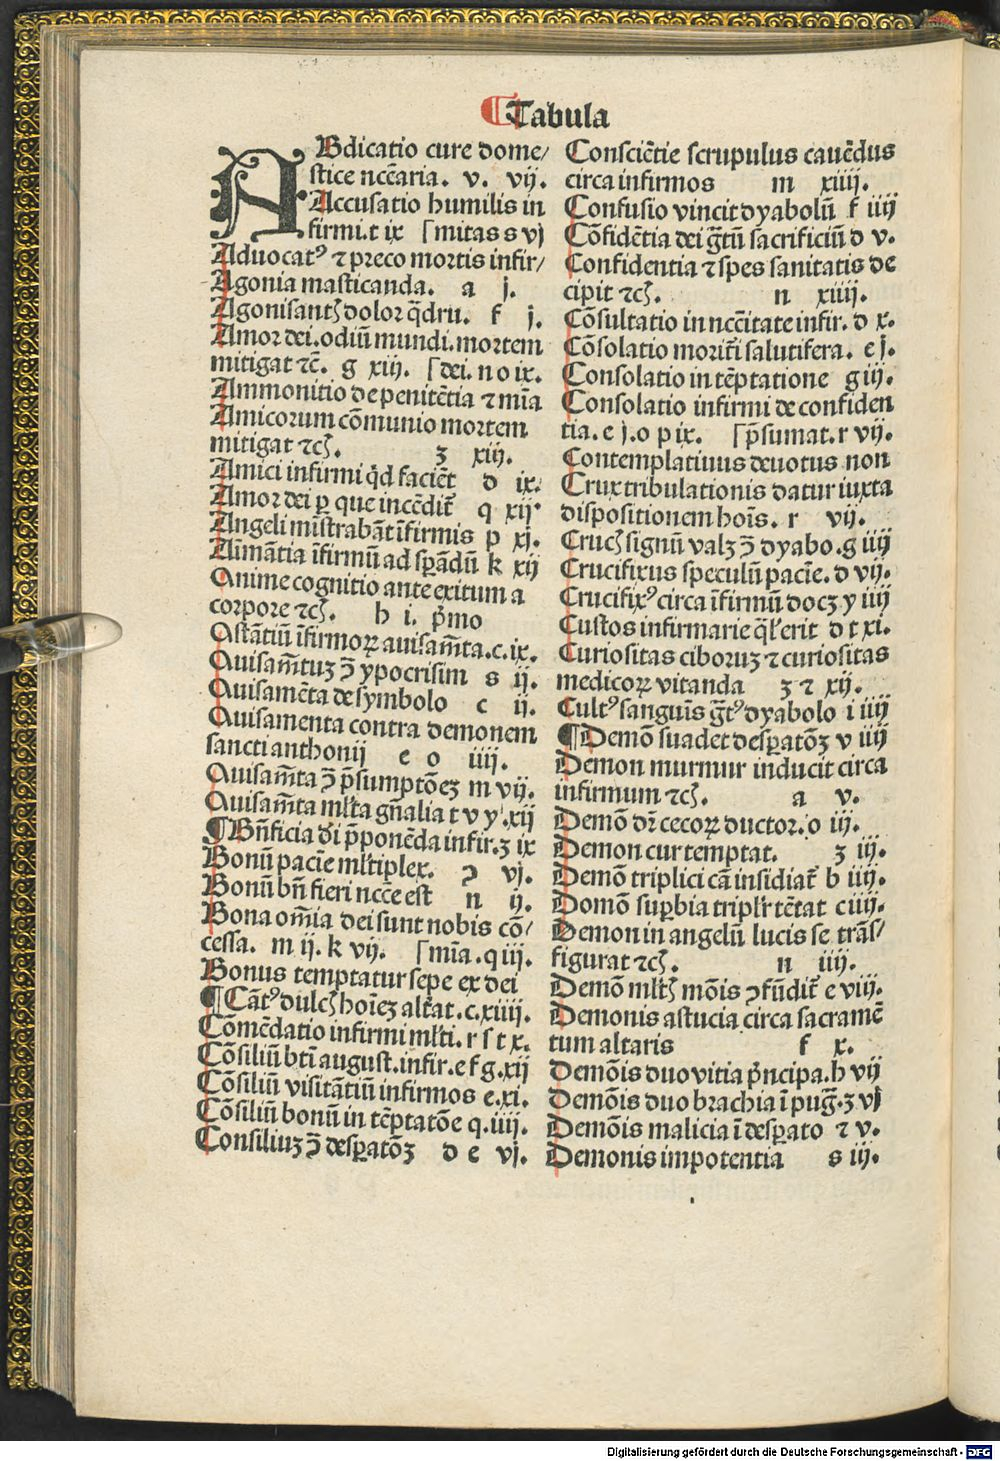 ¶Tabula
ABdicatio cure dome/
stice nccͤaria. v. vij.
Accusatio humilis in
firmi.t ix [mitas s vj
Aduocatꝰ ⁊ preco mortis infir/
Agonia masticanda. a j.
Agonisantꝭ dolor q̄dru. f j.
Amor dei.odiū mundi.mortem
mitigat ⁊c̄. g xij. [dei. n o ix.
Ammonitio de penitētia ⁊ mīa
Amicorum cōmunio mortem
mitigat ⁊cꝭ. z xij.
Amici infirmi qͥd faciēt d ix.
Amor dei ꝑ que incēdit᷑ q xij
Angeli mīstrabāt īfirmis p xj.
Aimātia īfirmū ad sꝑandū k xij
Anime cognitio ante exitum a
corpore ⁊cꝭ. h i. pͥmo
Astātiū īfirmoꝝ auisam̄ta.c.ix.
Auisam̄tuꝫ ↄ̄ ypocrisim s ij.
Auisamēta de symbolo c ij.
Auisamenta contra demonem
sancti anthonij e o iiij.
Auisam̄ta ↄ̄ p̄sumptōeꝫ m vij.
Auisam̄ta ml̄ta gn̄alia t v y.xij
¶Bn̄ficia dī p̄ponēda infir.z ix
Bonū pacīe ml̄tiplex. ꝛ vj.
Bonū bn̄ fieri ncc̄e est n ij.
Bona om̄ia dei sunt nobis cō/
cessa. m ij. k vij. [mīa.q iij.
Bonus temptatur sepe ex dei
¶Cātꝰ dulcꝭ hoīeꝫ alt̄at.c.xiiij.
Cōmēdatio infirmi ml̄ti. r s t x.
Cōsiliū btī august.infir.e f g.xij
Cōsiliū visitātiū infirmos e.xi.
Cōsiliū bonū in tēptatōe q.iiij.
Consiliuꝫ ↄ̄ desꝑatōꝫ d e vj.
Consciētie scrupulus cauēdus
circa infirmos m xiiij.
Confusio vincit dyabolū f iiij
Cōfidētia dei gr̄tū sacrificiū d v.
Confidentia ⁊ spes sanitatis de
cipit ⁊cꝭ. n xiiij.
Cōsultatio in nccītate infir. d x.
Cōsolatio morit̄i salutifera. e j.
Consolatio in tēptatione g iij.
Consolatio infirmi de confiden
tia. e j.o p ix. [p̄sumat.r vij.
Contemplatiuus deuotus non
Crux tribulationis datur iuxta
dispositionem hoīs. r vij.
Crucꝭ signū valꝫ ↄ̄ dyabo.g iiij
Crucifixus speculū pacīe. d vij.
Crucifixꝰ circa īfirmū docꝫ y iiij
Custos infirmarie ql̄ erit d t xi.
Curiositas ciboruꝫ ⁊ curiositas
medicoꝝ vitanda z ⁊ xij.
Cultꝰ sanguīs gr̄tꝰ dyabolo i iiij
¶Demō suadet desꝑatōꝫ v iiij
Demon murmur inducit circa
infirmum ⁊cꝭ. a v.
Demō dr̄ cecoꝝ ductor. o iij.
Demon cur temptat. z iij.
Demō triplici cā insidiat᷑ b iiij.
Domō suꝑbia tripl̄r tētat c iiij.
Demon in angelū lucis se trās/
figurat ⁊cꝭ. n iiij.
Demō ml̄tꝭ mōis ↄfūdit᷑ e viij.
Demonis astucia circa sacramē
tum altaris f x.
Demōis duo vitia pͥncipa.h vij
Demōis duo brachia ī pug̅.z vj
Demōis malicia ī desꝑato ⁊ v.
Demonis impotentia s iij.
Digitalisierung gefördert durch die Deutsche Forschungsgemeinschaft - DFG